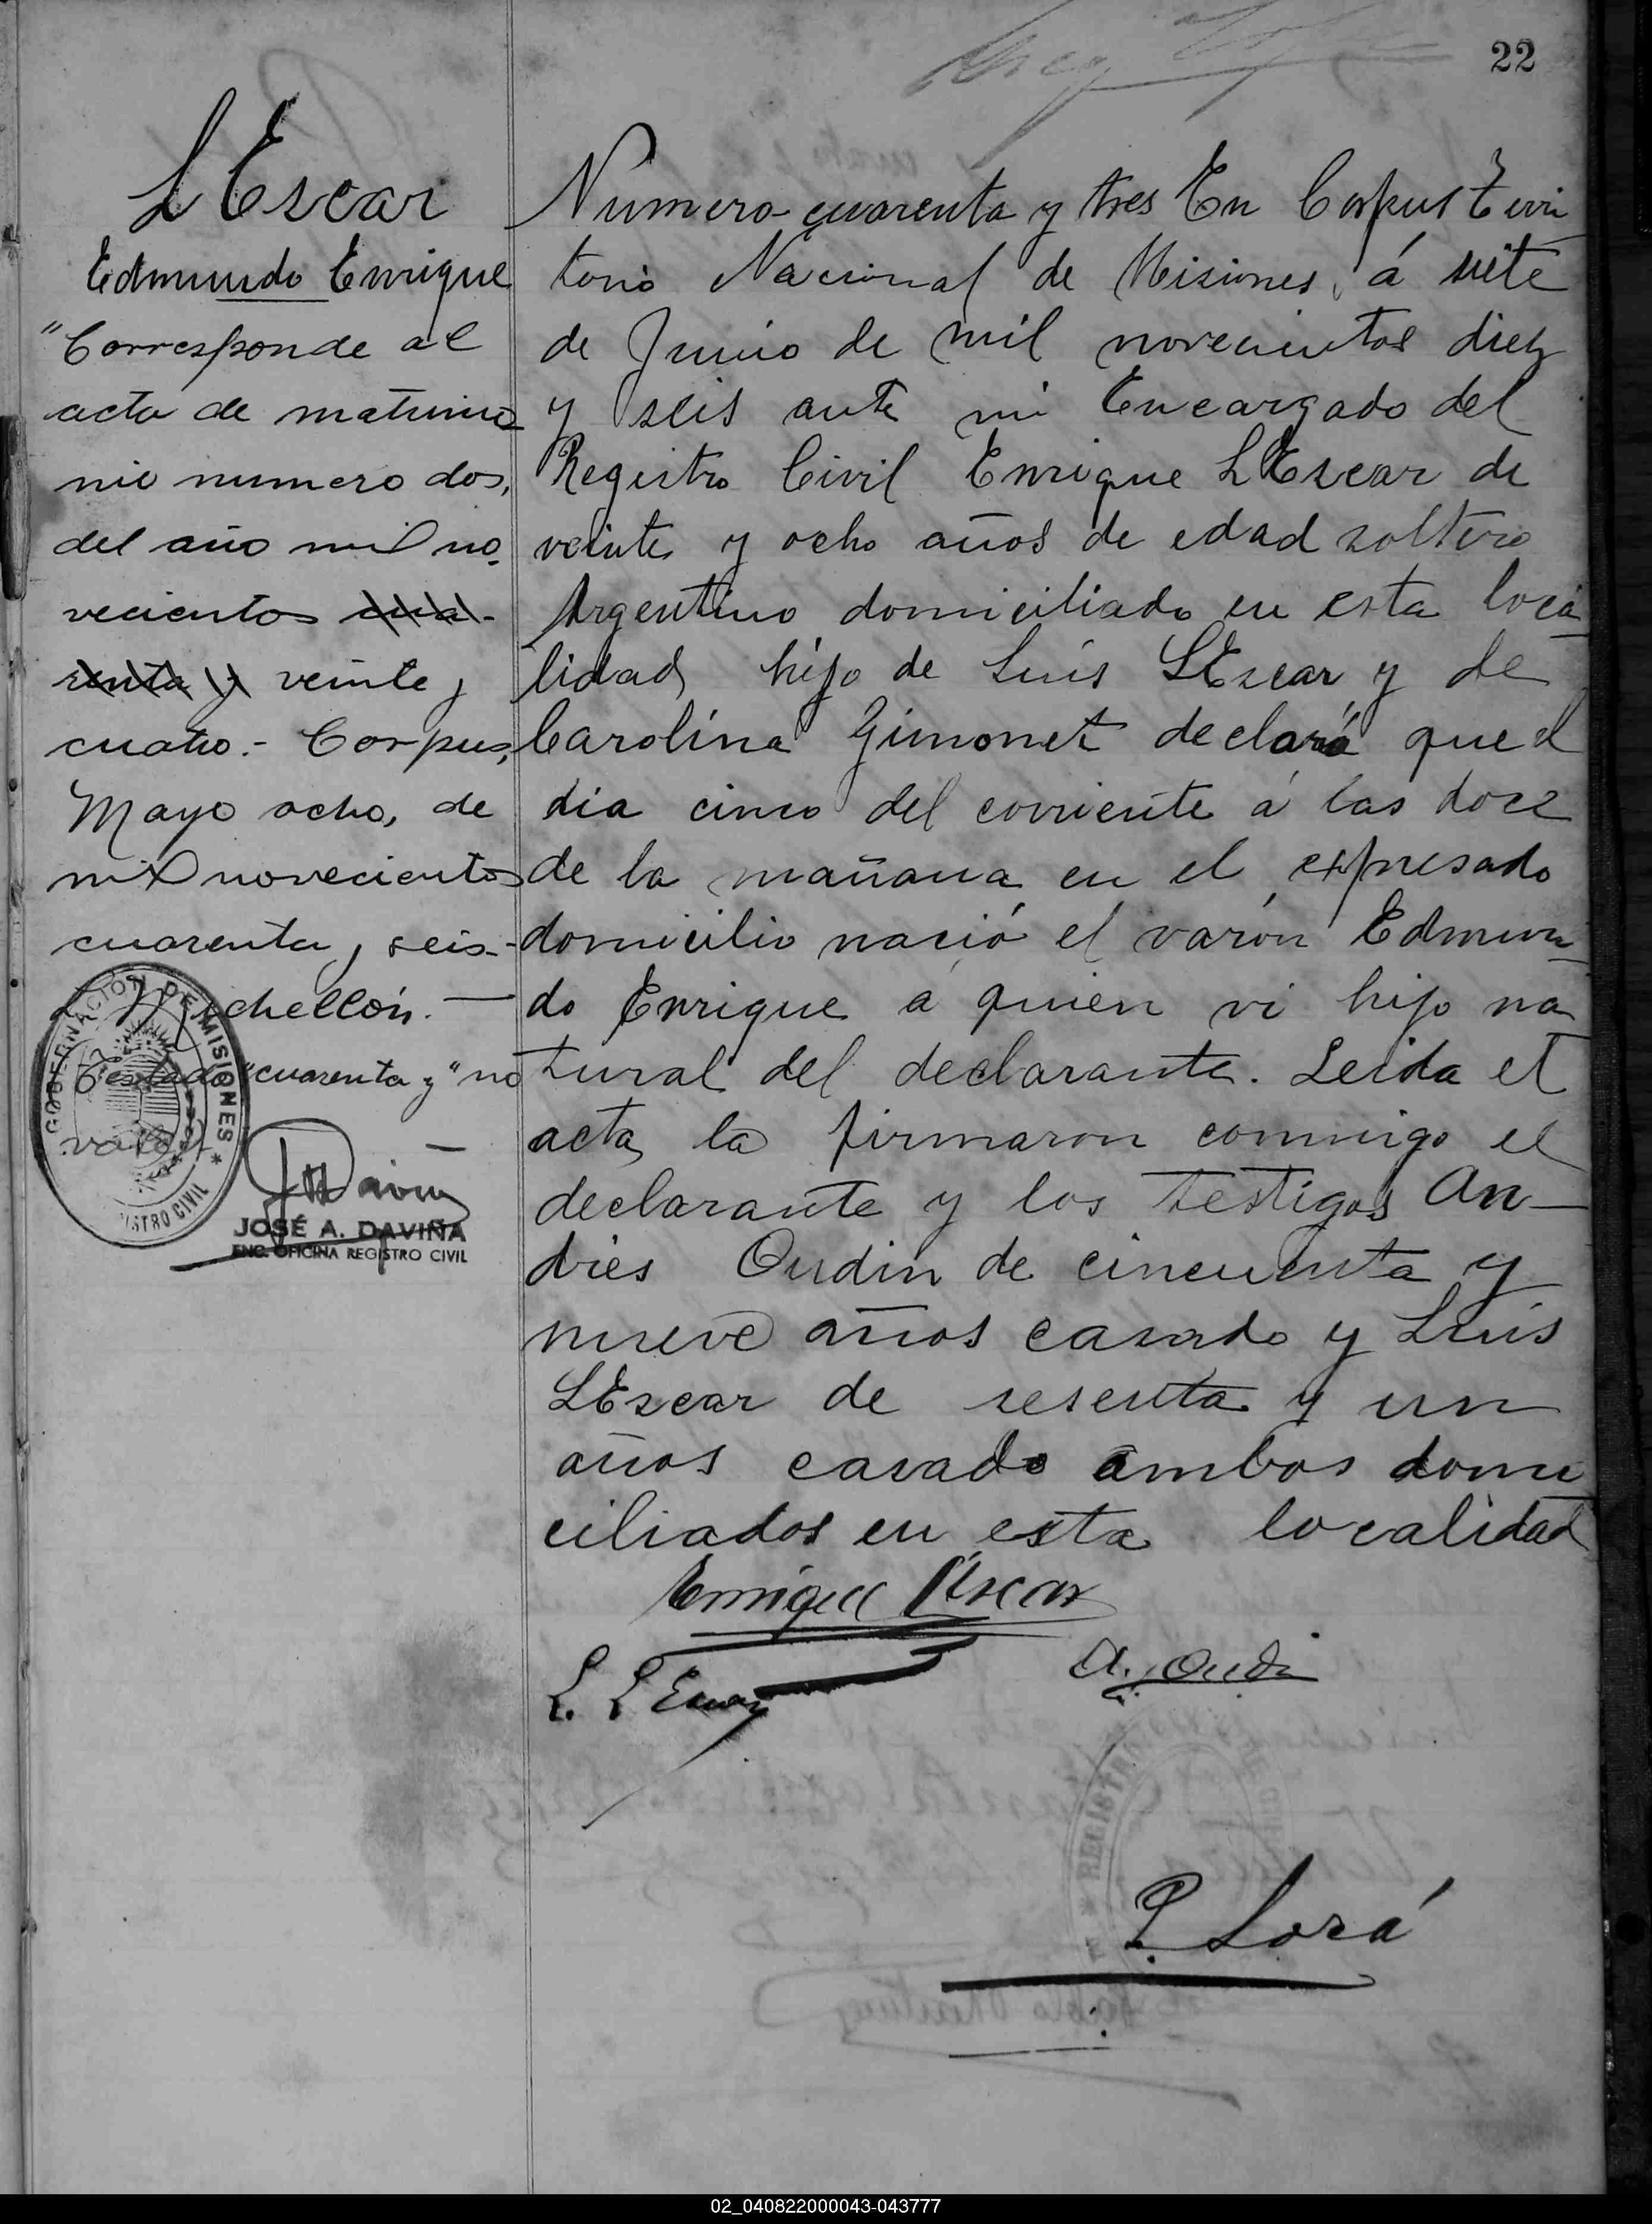 22
LEscar
Edmundo Enrique
"Corresponde al
acta de matrimo
nio numero dos,
del año mil no
vecientos cua-
renta y veinte y
cuatro.- Corpus,
Mayo ocho, de
mil novecientos
cuarenta y seis.-
Michellón. —
Testado "cuarenta y" no
vale.
GOBERNACION DE MISIONES
REGISTRO CIVIL
JOSÉ A. DAVIÑA
ENC. OFICINA REGISTRO CIVIL
Numero cuarenta y tres En Corpus Terri
torio Nacional de Misiones, á siete
de Junio de mil novecientos diez
y seis ante mi Encargado del
Registro Civil Enrique LEscar de
veinte y ocho años de edad soltero
Argentino domiciliado en esta loca
lidad hijo de Luis LEscar y de
Carolina Gimonet declará que el
dia cinco del corriente á las doce
de la mañana en el expresado
domicilio nació el varón Edmun
do Enrique á quien vi hijo na
tural del declarante. Leida el
acta la firmaron conmigo el
declarante y los testigos An-
drés Oudin de cincuenta y
nueve años casado y Luis
LEscar de sesenta y un
años casado ambos domi
ciliados en esta localidad
Enrique LEscar
L. LEscar
A. Oudin
P. Lozá
02_040822000043-043777